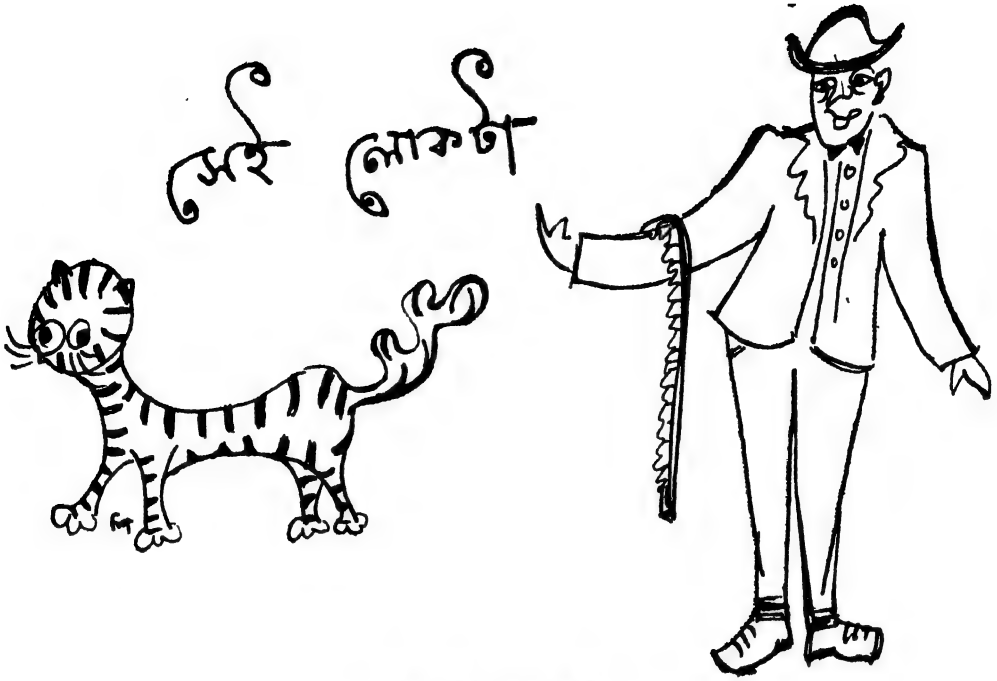 সেই লোকটা